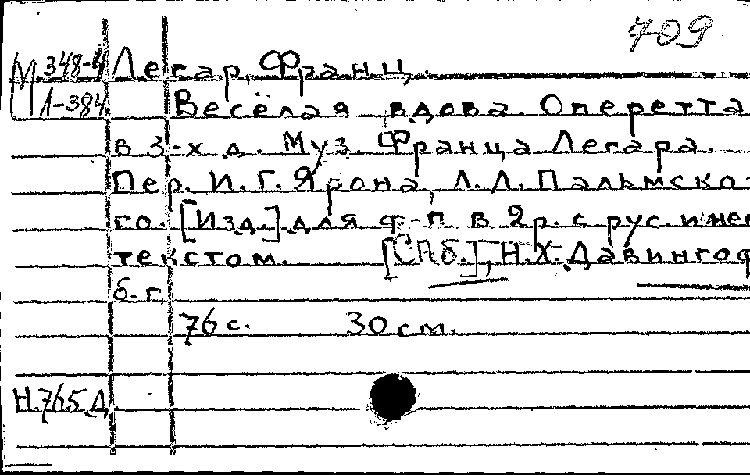 709
М 348-4 Легар, Франц.
Л-384 Весёлая вдова Оперетта
в 3-х д. Муз. Франца Легара.
Пер. И. Г. Ярона, Л. Л. Пальмско-
го. [Изд.] для ф-п в 2р. с рус. и нем
текстом. [СПб.], Н.Х. Давингоф
б. г.
76 с. 30 см.
Н.765 Д